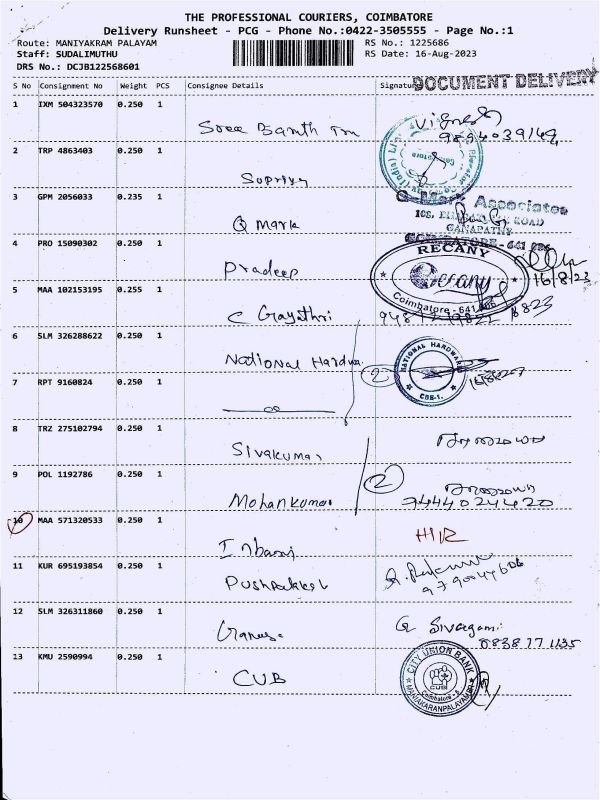 THE PROFESSIONAL COURIERS, COIMBATORE
Delivery Runsheet - PCG - Phone No.:0422-3505555 - Page No.:1
Route: MANIYAKRAM PALAYAM RS No.: 1225686
Staff: SUDALIMUTHU RS Date: 16-Aug-2023
DRS No.: DCJB122568601
S No Consignment No Weight PCS Consignee Details Signature DOCUMENT DELIVERY
1 IXM 504323570 0.250 1
Sree
9894039149
2 TRP 4863403 0.250 1
Supriya
3 GPM 2056033 0.235 1 Q Mark Associates
Q Mark ROAD
GANAPATHY
COIMBATORE - 641 006
4 PRO 15090302 0.250 1 RECANY
Pradeep Recany 16/8/23
5 MAA 102153195 0.255 1 Coimbatore - 641 006
C Gayathri
6 SLM 326288622 0.250 1
National Hardwa 2 NATIONAL HARDWARE
CBE-1.
7 RPT 9160824 0.250 1
8 TRZ 275102794 0.250 1
Sivakumar
9 POL 1192786 0.250 1 2
Mohankumar 9444024420
10 MAA 571320533 0.250 1
11 KUR 695193854 0.250 1
9790044606
12 SLM 326311860 0.250 1
Sivagami
13 KMU 2590994 0.250 1 CITY UNION BANK
CUB CUB
Coimbatore - 6
MANIAKARANPALAYAM